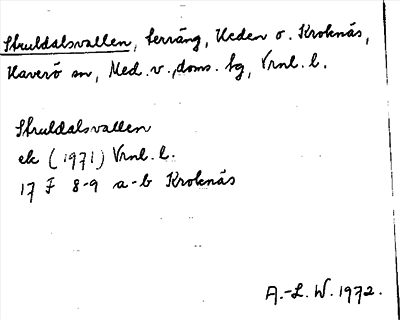 Struldalsvallen, terräng, Heden o. Kroknäs,
Haverö sn, Med. v., doms. tg, Vrnl. l.
Struldalsvallen
ek (1971) Vrnl. l.
17 F 8-9 a-b Kroknäs
A.-L. W. 1972.